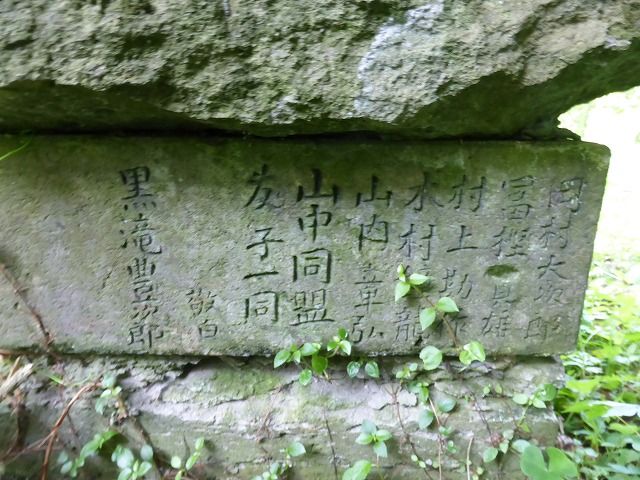 岡村大次郎
冨樫昌雄
村上勘作
木村龍
山内章弘
山中同盟
友子一同
敬白
黒滝豊次郎